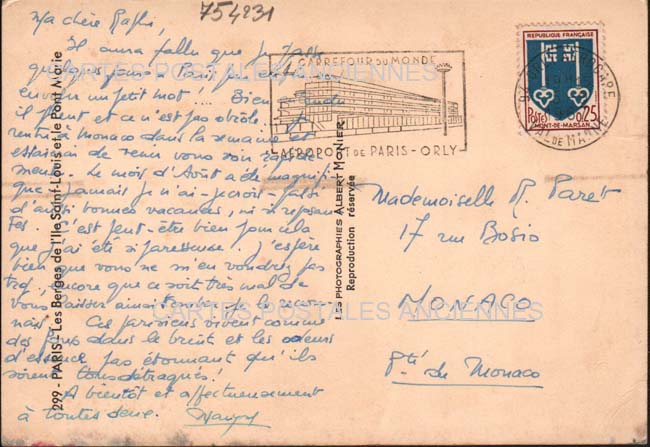 754231
Ma chère Raphi,
Il aura fallu que je passe
quelques jours à Paris pour
envoyer un petit mot! ... Bien entendu
il pleut et ce n'est pas drôle. Je
rentre à Monaco dans la semaine et
essaierai de venir vous voir rapide
ment. Le mois d'Août a été magnifi
que, jamais je n'ai - je crois - passé
d'aussi bonnes vacances, ni si reposan
tes. C'est peut-être bien pour cela
que j'ai été si paresseuse. J'espère
bien que vous ne m'en voudrez pas
trop, encore que ce soit très mal de
vous laisser ainsi tomber, je le recon
nais. Ces parisiens vivent comme
des fous dans le bruit et les odeurs
d'essence, pas étonnant qu'ils
soient tous détraqués!
A bientôt et affectueusement
à toutes deux.
299 - PARIS - Les Berges de l'Ile Saint-Louis et le Pont Marie
LES PHOTOGRAPHIES ALBERT MONIER
Reproduction réservée
CARREFOUR DU MONDE
AÉROPORT DE PARIS - ORLY
REPUBLIQUE FRANÇAISE
POSTES 0,25
MONT-DE-MARSAN
Mademoiselle R. Paret
17 rue Bosio
MONACO
Pté de Monaco
CARTES POSTALES ANCIENNES
CARTES POSTALES ANCIENNES